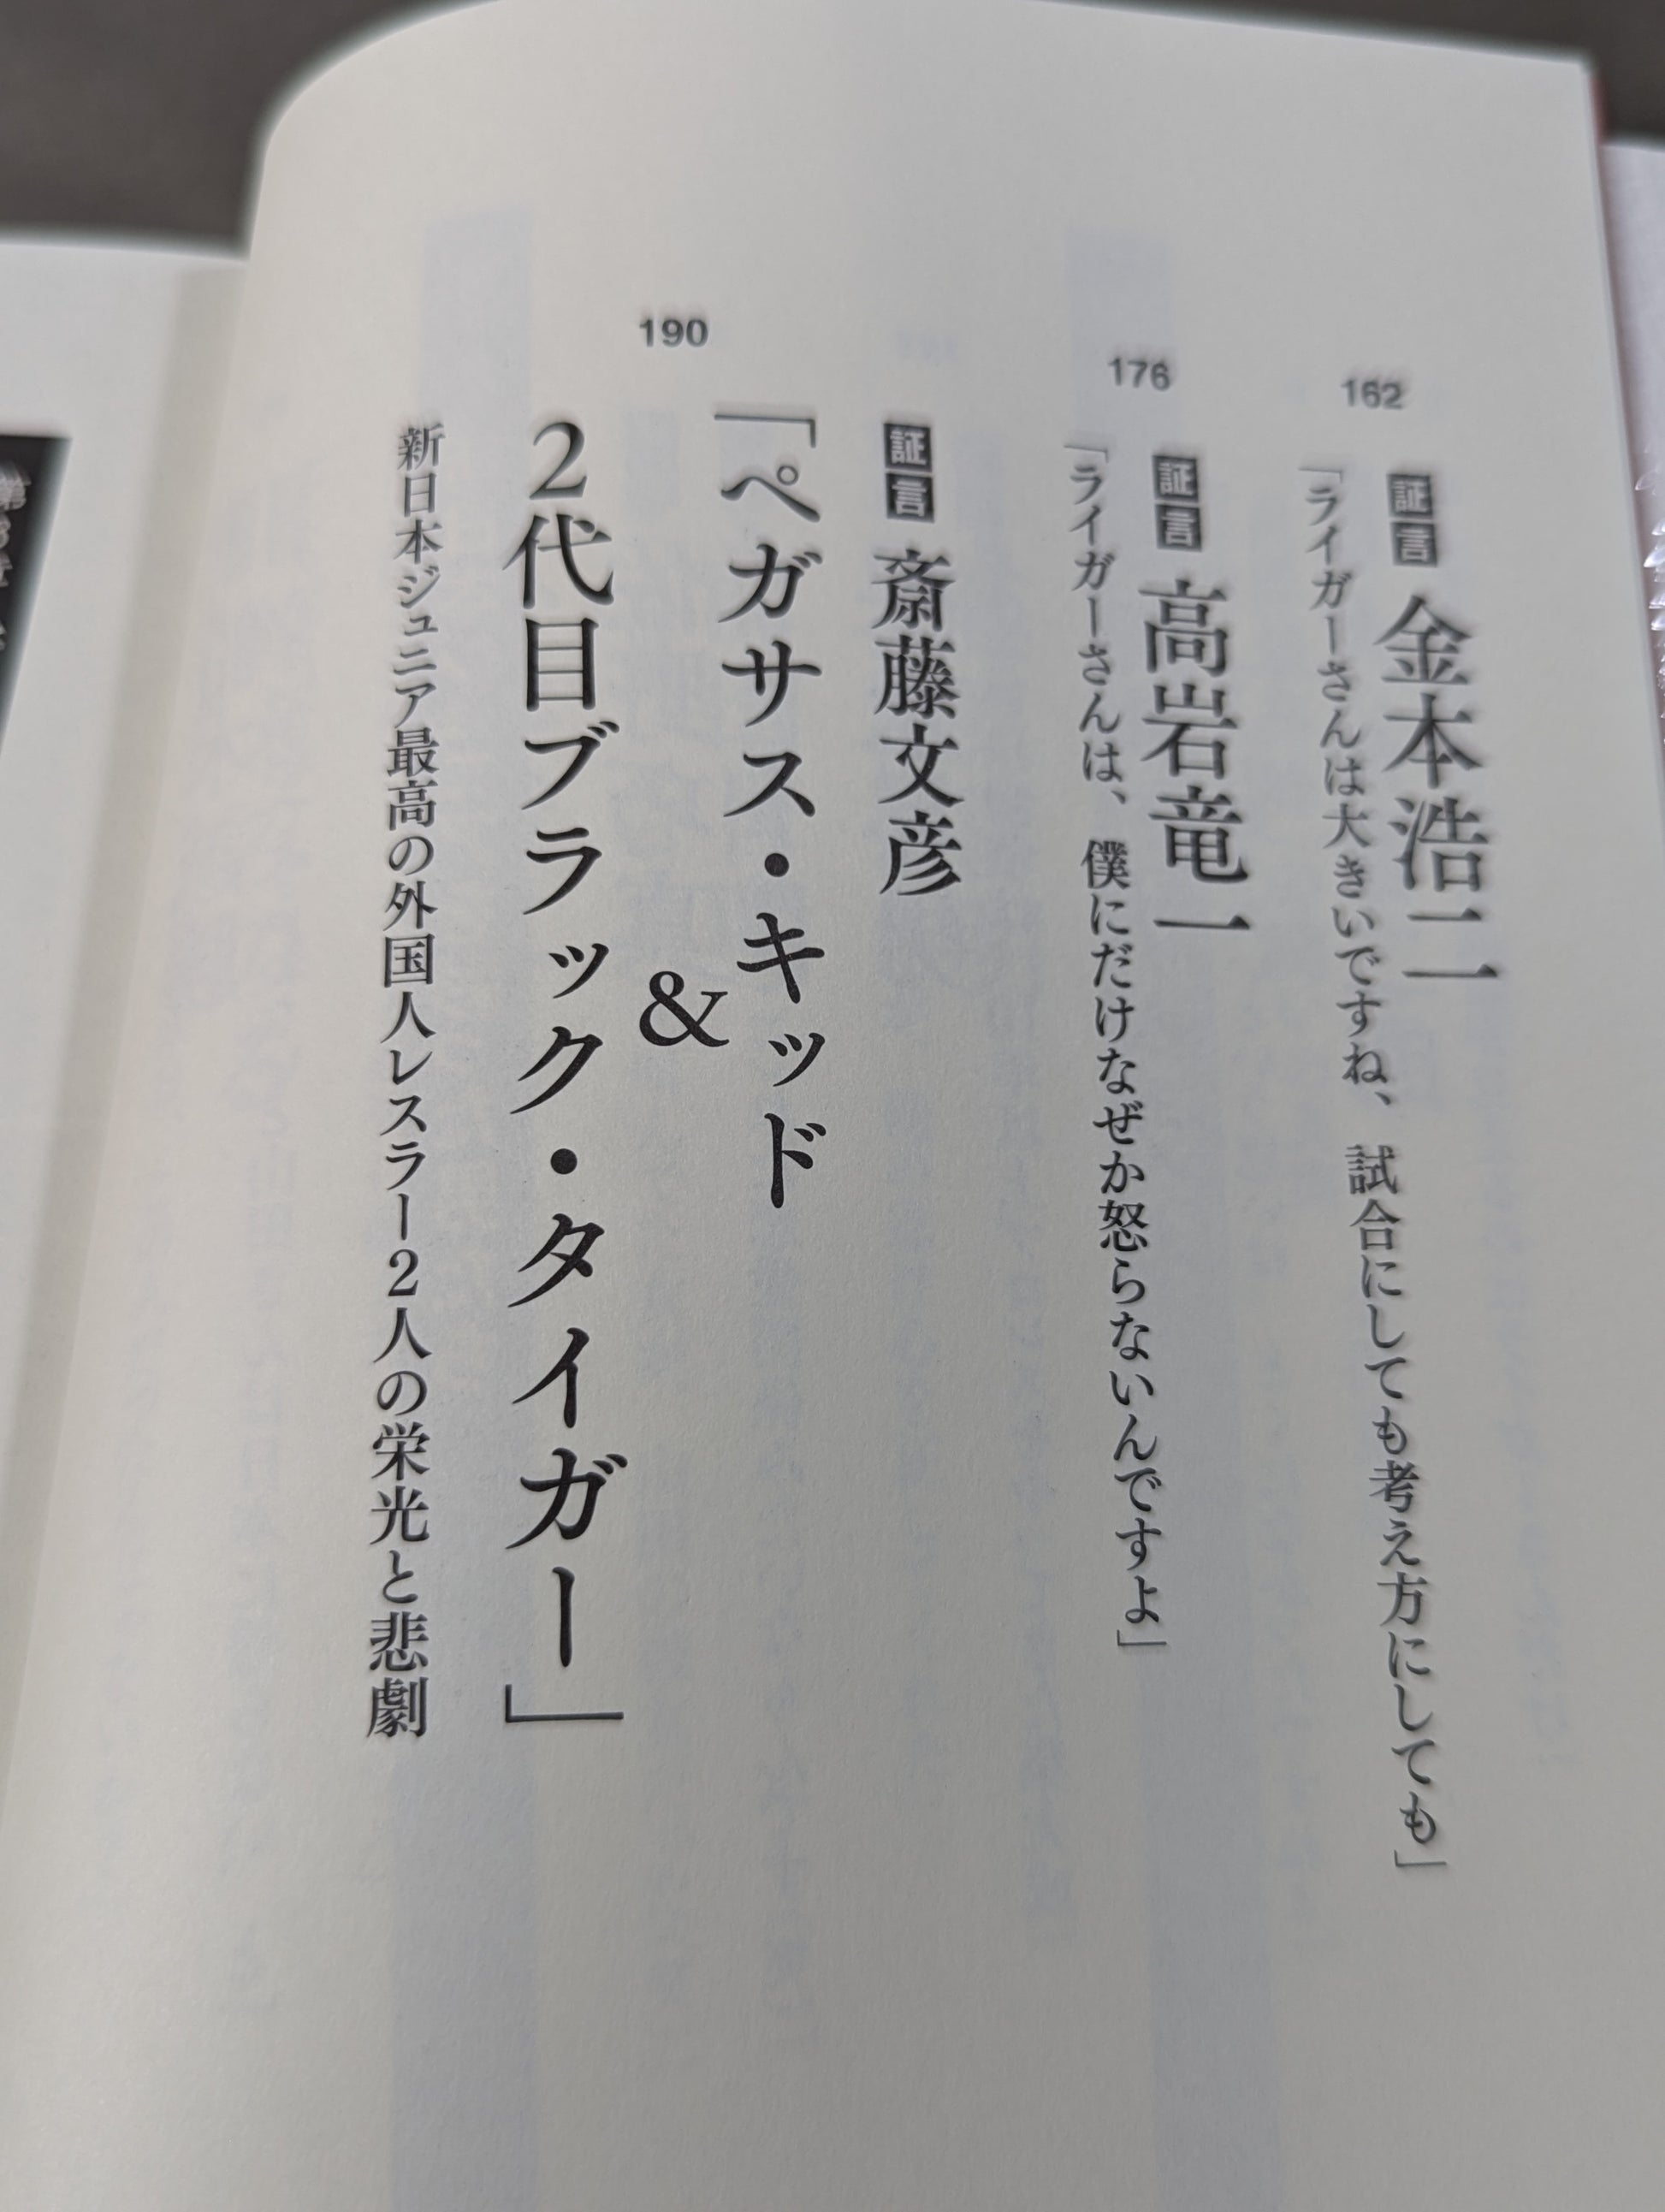 162
証言 金本浩二
「ライガーさんは大きいですね、試合にしても考え方にしても」
176
証言 高岩竜一
「ライガーさんは、僕にだけなぜか怒らないんですよ」
190
証言 斎藤文彦
「ペガサス・キッド
&
2代目ブラック・タイガー」
新日本ジュニア最高の外国人レスラー2人の栄光と悲劇